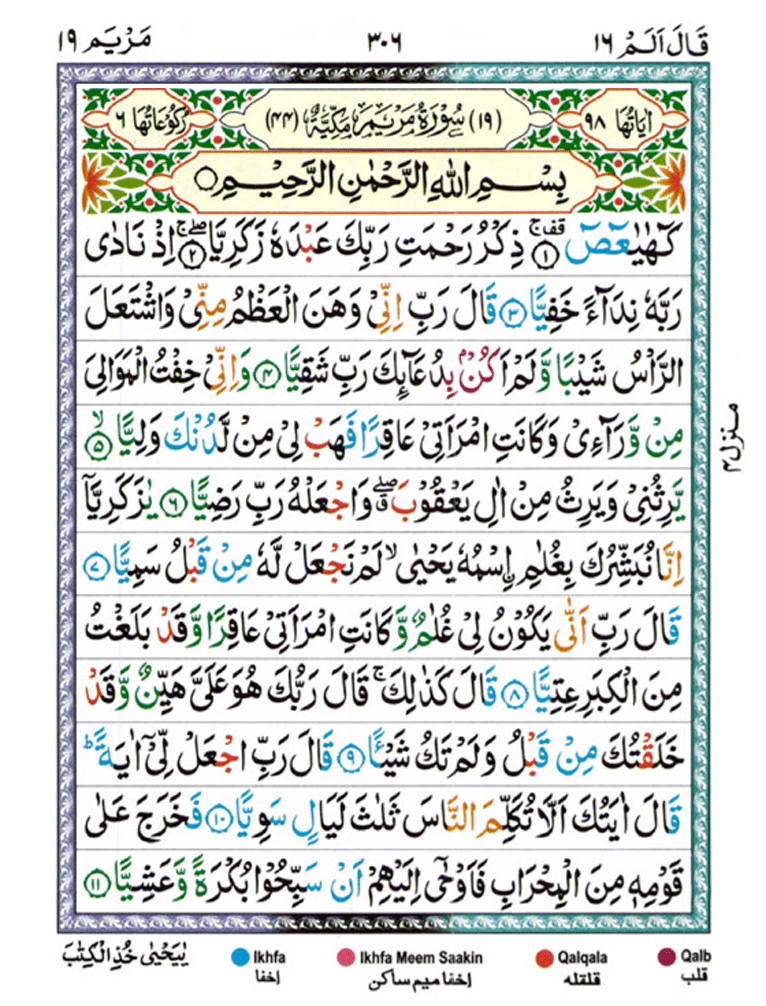 قَالَ اَلَمْ ١٦ ٣٠٦ مَرْيَم ١٩
اٰيَاتُهَا ٩٨ (١٩) سُوْرَةُ مَرْيَمَ مَكِّيَّةٌ (٤٤) رُكُوْعَاتُهَا ٦
بِسْمِ اللّٰهِ الرَّحْمٰنِ الرَّحِيْمِ
كٓهٰيٰعٓصٓ ۚ‏ۛ ﴿١﴾ ذِكْرُ رَحْمَتِ رَبِّكَ عَبْدَهٗ زَكَرِيَّا ۖۚ ﴿٢﴾ اِذْ نَادٰى
رَبَّهٗ نِدَآءً خَفِيًّا ﴿٣﴾ قَالَ رَبِّ اِنِّىْ وَهَنَ الْعَظْمُ مِنِّىْ وَاشْتَعَلَ
الرَّاْسُ شَيْبًا وَّلَمْ اَكُنْۢ بِدُعَآئِكَ رَبِّ شَقِيًّا ﴿٤﴾ وَاِنِّىْ خِفْتُ الْمَوَالِىَ
مِنْ وَّرَآءِىْ وَكَانَتِ امْرَاَتِىْ عَاقِرًا فَهَبْ لِىْ مِنْ لَّدُنْكَ وَلِيًّا ۙ ﴿٥﴾
يَّرِثُنِىْ وَيَرِثُ مِنْ اٰلِ يَعْقُوْبَ ۖ وَاجْعَلْهُ رَبِّ رَضِيًّا ﴿٦﴾ يٰزَكَرِيَّآ
اِنَّا نُبَشِّرُكَ بِغُلٰمِ ۨاسْمُهٗ يَحْيٰى ۙ لَمْ نَجْعَلْ لَّهٗ مِنْ قَبْلُ سَمِيًّا ﴿٧﴾
قَالَ رَبِّ اَنّٰى يَكُوْنُ لِىْ غُلٰمٌ وَّكَانَتِ امْرَاَتِىْ عَاقِرًا وَّقَدْ بَلَغْتُ
مِنَ الْكِبَرِ عِتِيًّا ﴿٨﴾ قَالَ كَذٰلِكَ ۚ قَالَ رَبُّكَ هُوَ عَلَىَّ هَيِّنٌ وَّقَدْ
خَلَقْتُكَ مِنْ قَبْلُ وَلَمْ تَكُ شَيْـًٔا ﴿٩﴾ قَالَ رَبِّ اجْعَلْ لِّىْٓ اٰيَةً ؕ
قَالَ اٰيَتُكَ اَلَّا تُكَلِّمَ النَّاسَ ثَلٰثَ لَيَالٍ سَوِيًّا ﴿١٠﴾ فَخَرَجَ عَلٰى
قَوْمِهٖ مِنَ الْمِحْرَابِ فَاَوْحٰٓى اِلَيْهِمْ اَنْ سَبِّحُوْا بُكْرَةً وَّعَشِيًّا ﴿١١﴾
منزل ٤
يٰيَحْيٰى خُذِ الْكِتٰبَ
Ikhfa Ikhfa Meem Saakin Qalqala Qalb
إخفا إخفا ميم ساكن قلقله قلب